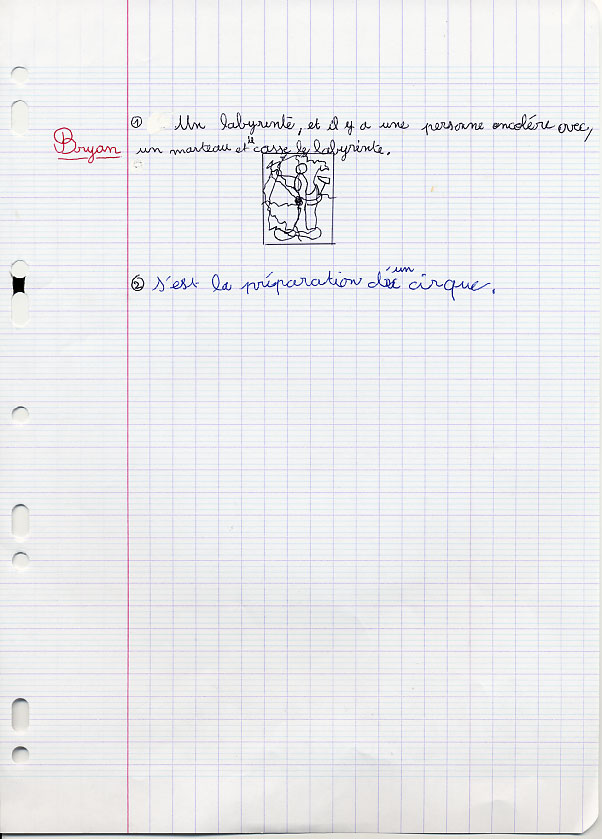 ① Un labyrinte, et il y a une personne encolére avec,
Bryan
un marteau et il casse le labyrinte.
② s'est la préparation d'un cirque.